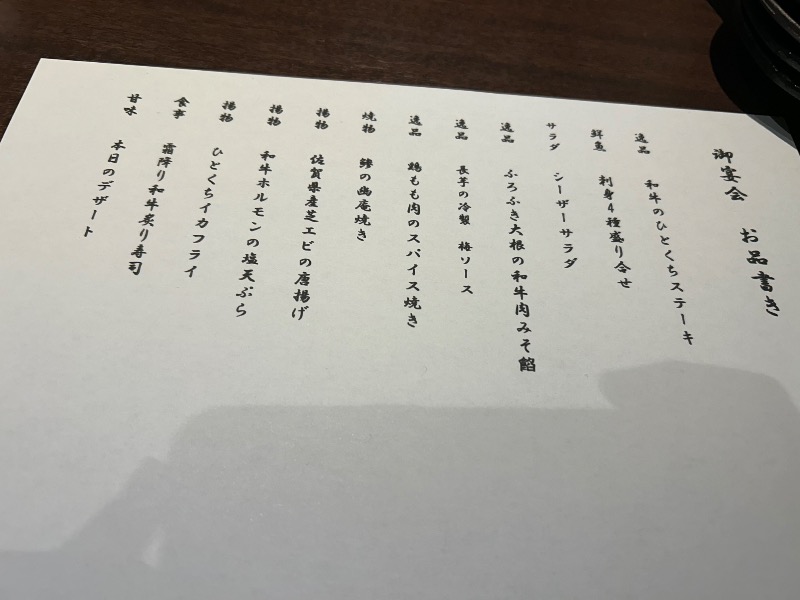 御宴会 お品書き
逸品 和牛のひとくちステーキ
鮮魚 刺身4種盛り合せ
サラダ シーザーサラダ
逸品 ふろふき大根の和牛肉みそ餡
逸品 長芋の冷製 梅ソース
逸品 鶏もも肉のスパイス焼き
焼物 鰆の幽庵焼き
揚物 佐賀県産芝エビの唐揚げ
揚物 和牛ホルモンの塩天ぷら
揚物 ひとくちイカフライ
食事 霜降り和牛炙り寿司
甘味 本日のデザート